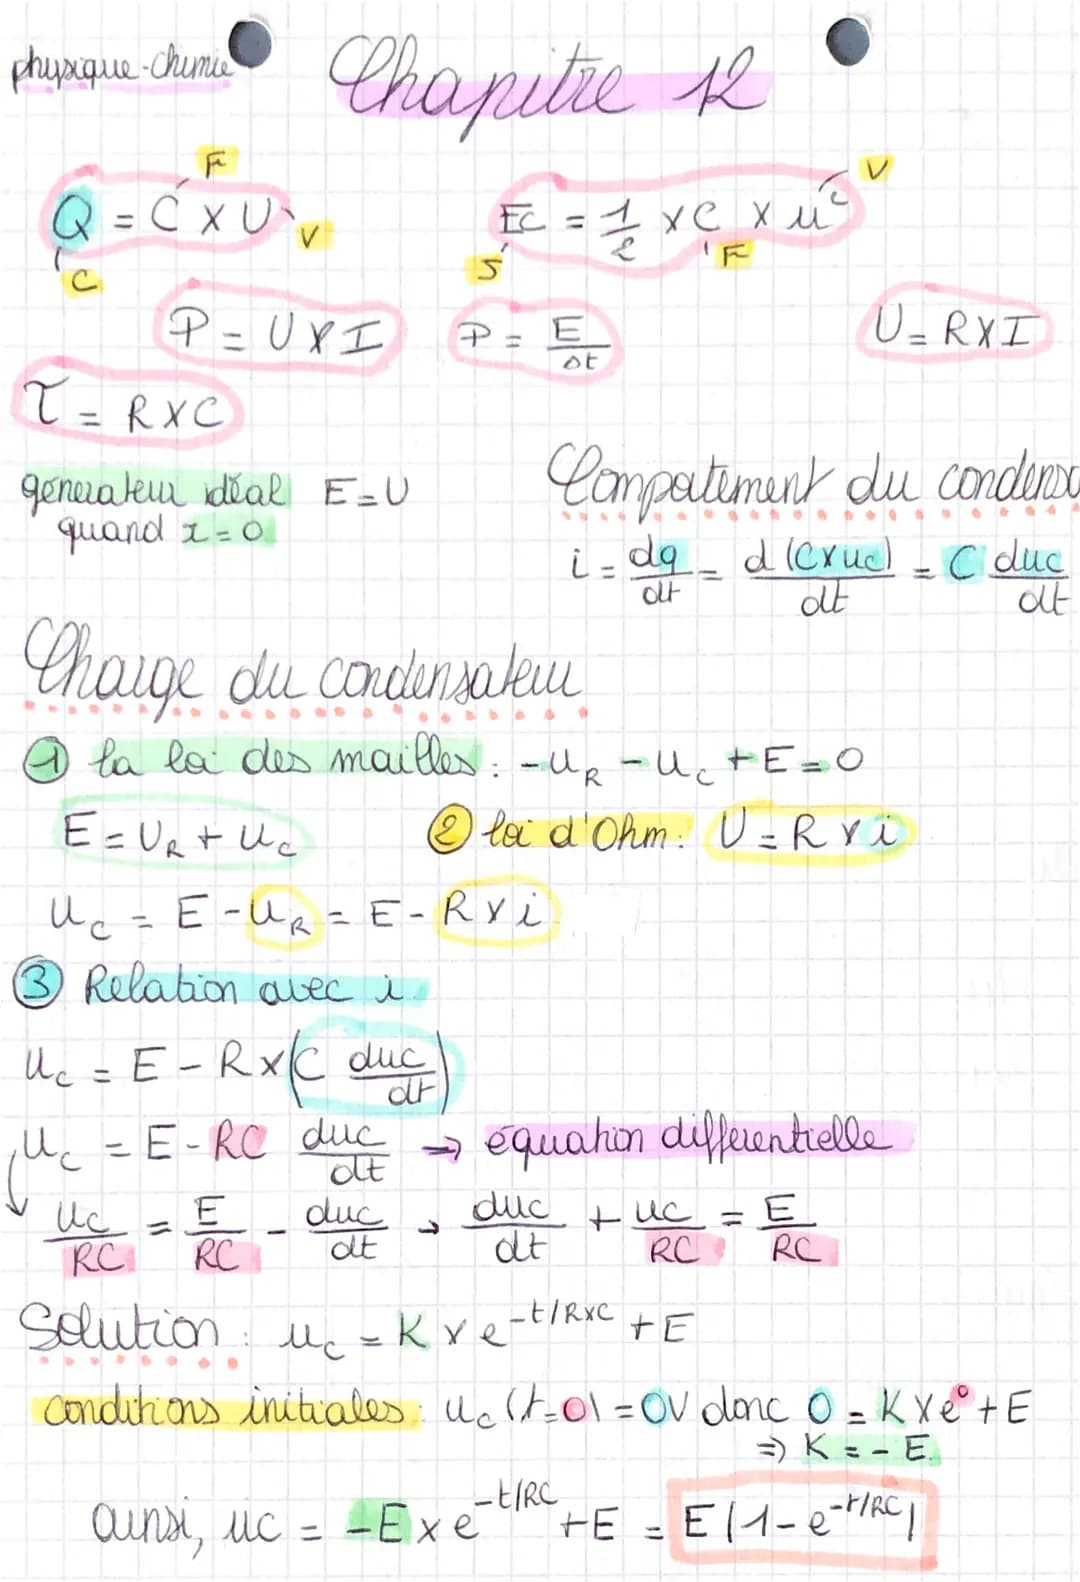 physique-chimie
Chapitre 12
F
Q = C × U
V
C
V
EC = 1/2 × C × u²
J
F
P = U × I
P = E/Δt
U = R × I
τ = R × C
génerateur idéal E = U
quand r = 0
Compatement du condensa
i = dq/dt = d(C×uc)/dt = C duc/dt
Charge du condensateur
① la loi des mailles : -uR - uc + E = 0
E = UR + uc
② loi d'Ohm : U = R × i
uc = E - uR = E - R × i
③ Relation avec i
uc = E - R × (C duc/dt)
uc = E - RC duc/dt → équation différentielle
↓ uc/RC = E/RC - duc/dt → duc/dt + uc/RC = E/RC
Solution : uc = K × e^-t/R×C + E
conditions initiales : uc (t=0) = 0V donc 0 = K × e^0 + E
⇒ K = - E.
ainsi, uc = -E × e^-t/RC + E = E(1-e^-t/RC)